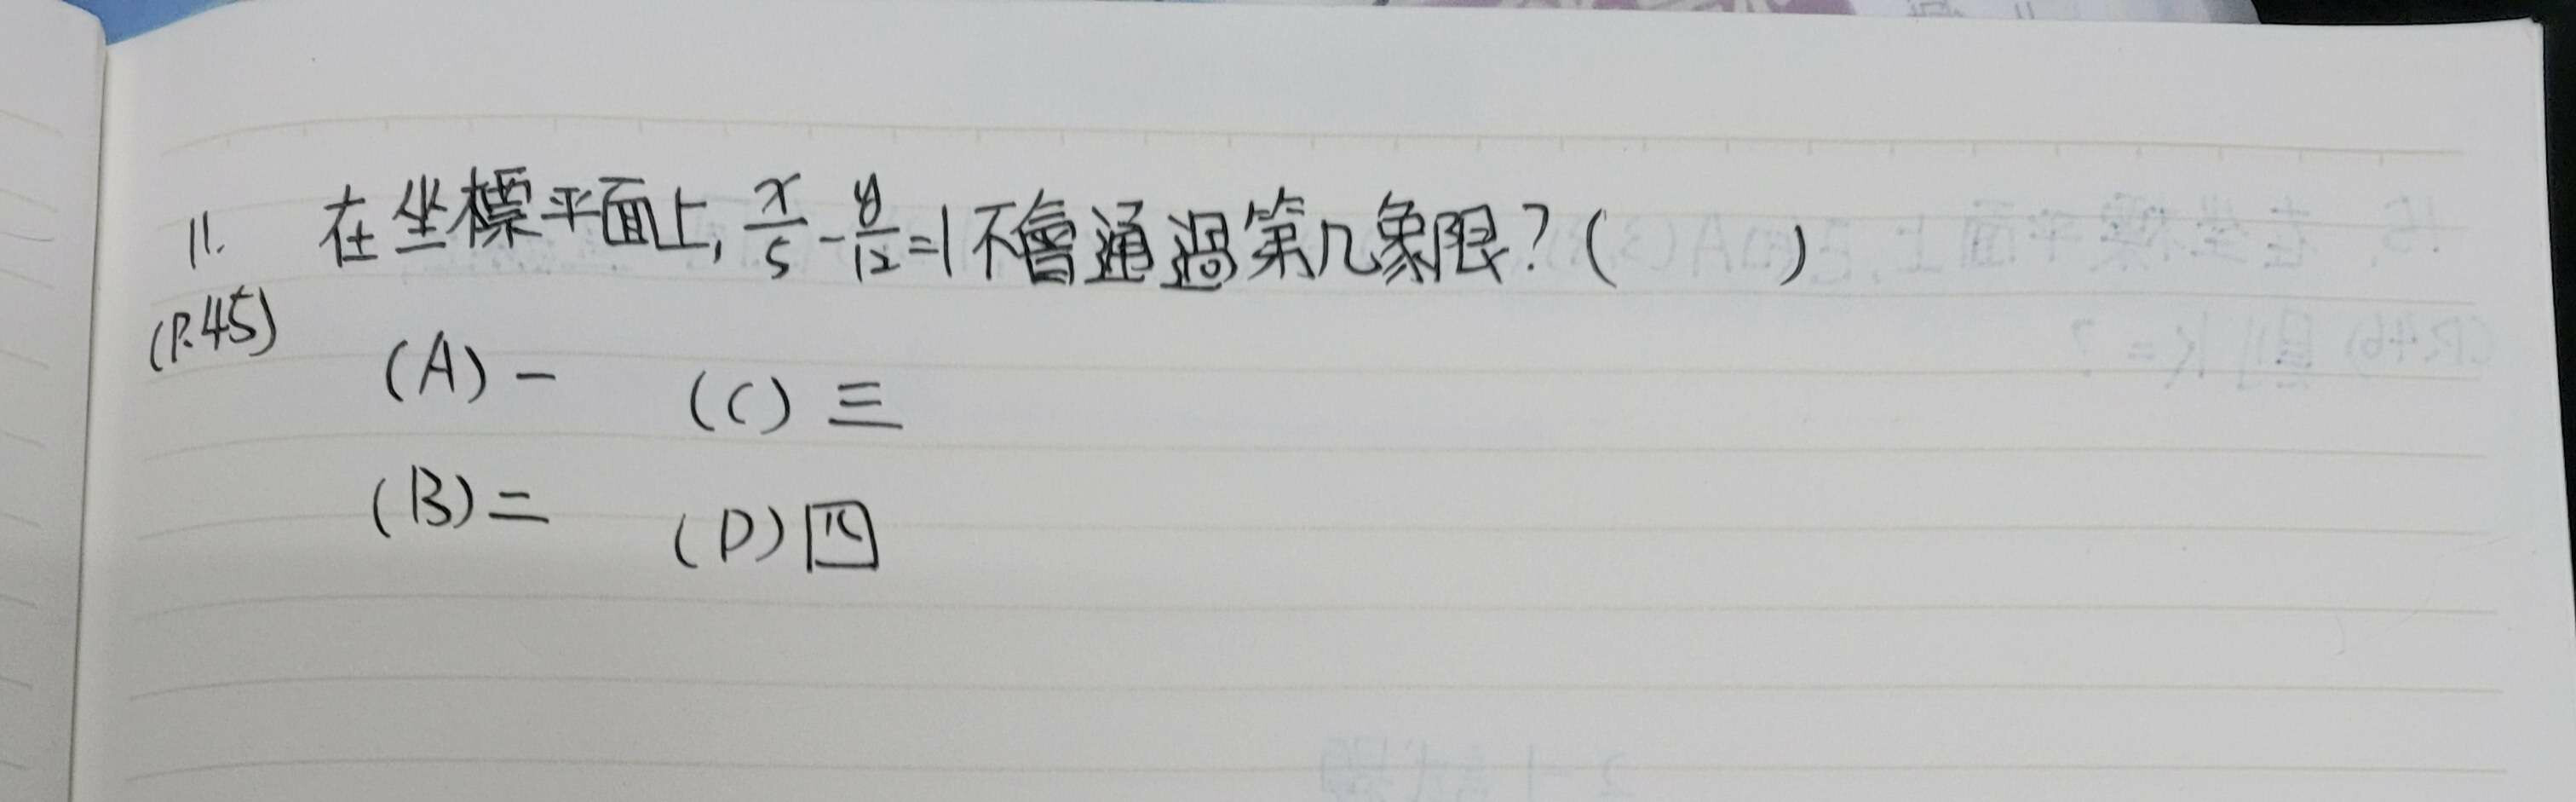 11. 在坐標平面上, x/5 - y/12 = 1 不會通過第几象限? ( )
(P.45)
(A) 一 (C) 三
(B) 二 (D) 四